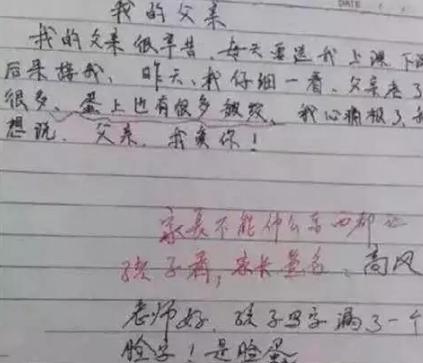 我的父亲
我的父亲很辛苦,每天要送我上课下课
后来接我,昨天,我仔细一看,父亲老了
很多,蛋上也有很多皱纹,我心痛极了,我
想说,父亲,我爱你!
家长不能什么东西都让
孩子看,家长签名、高风
老师好,孩子写字漏了一个
脸字!是脸蛋